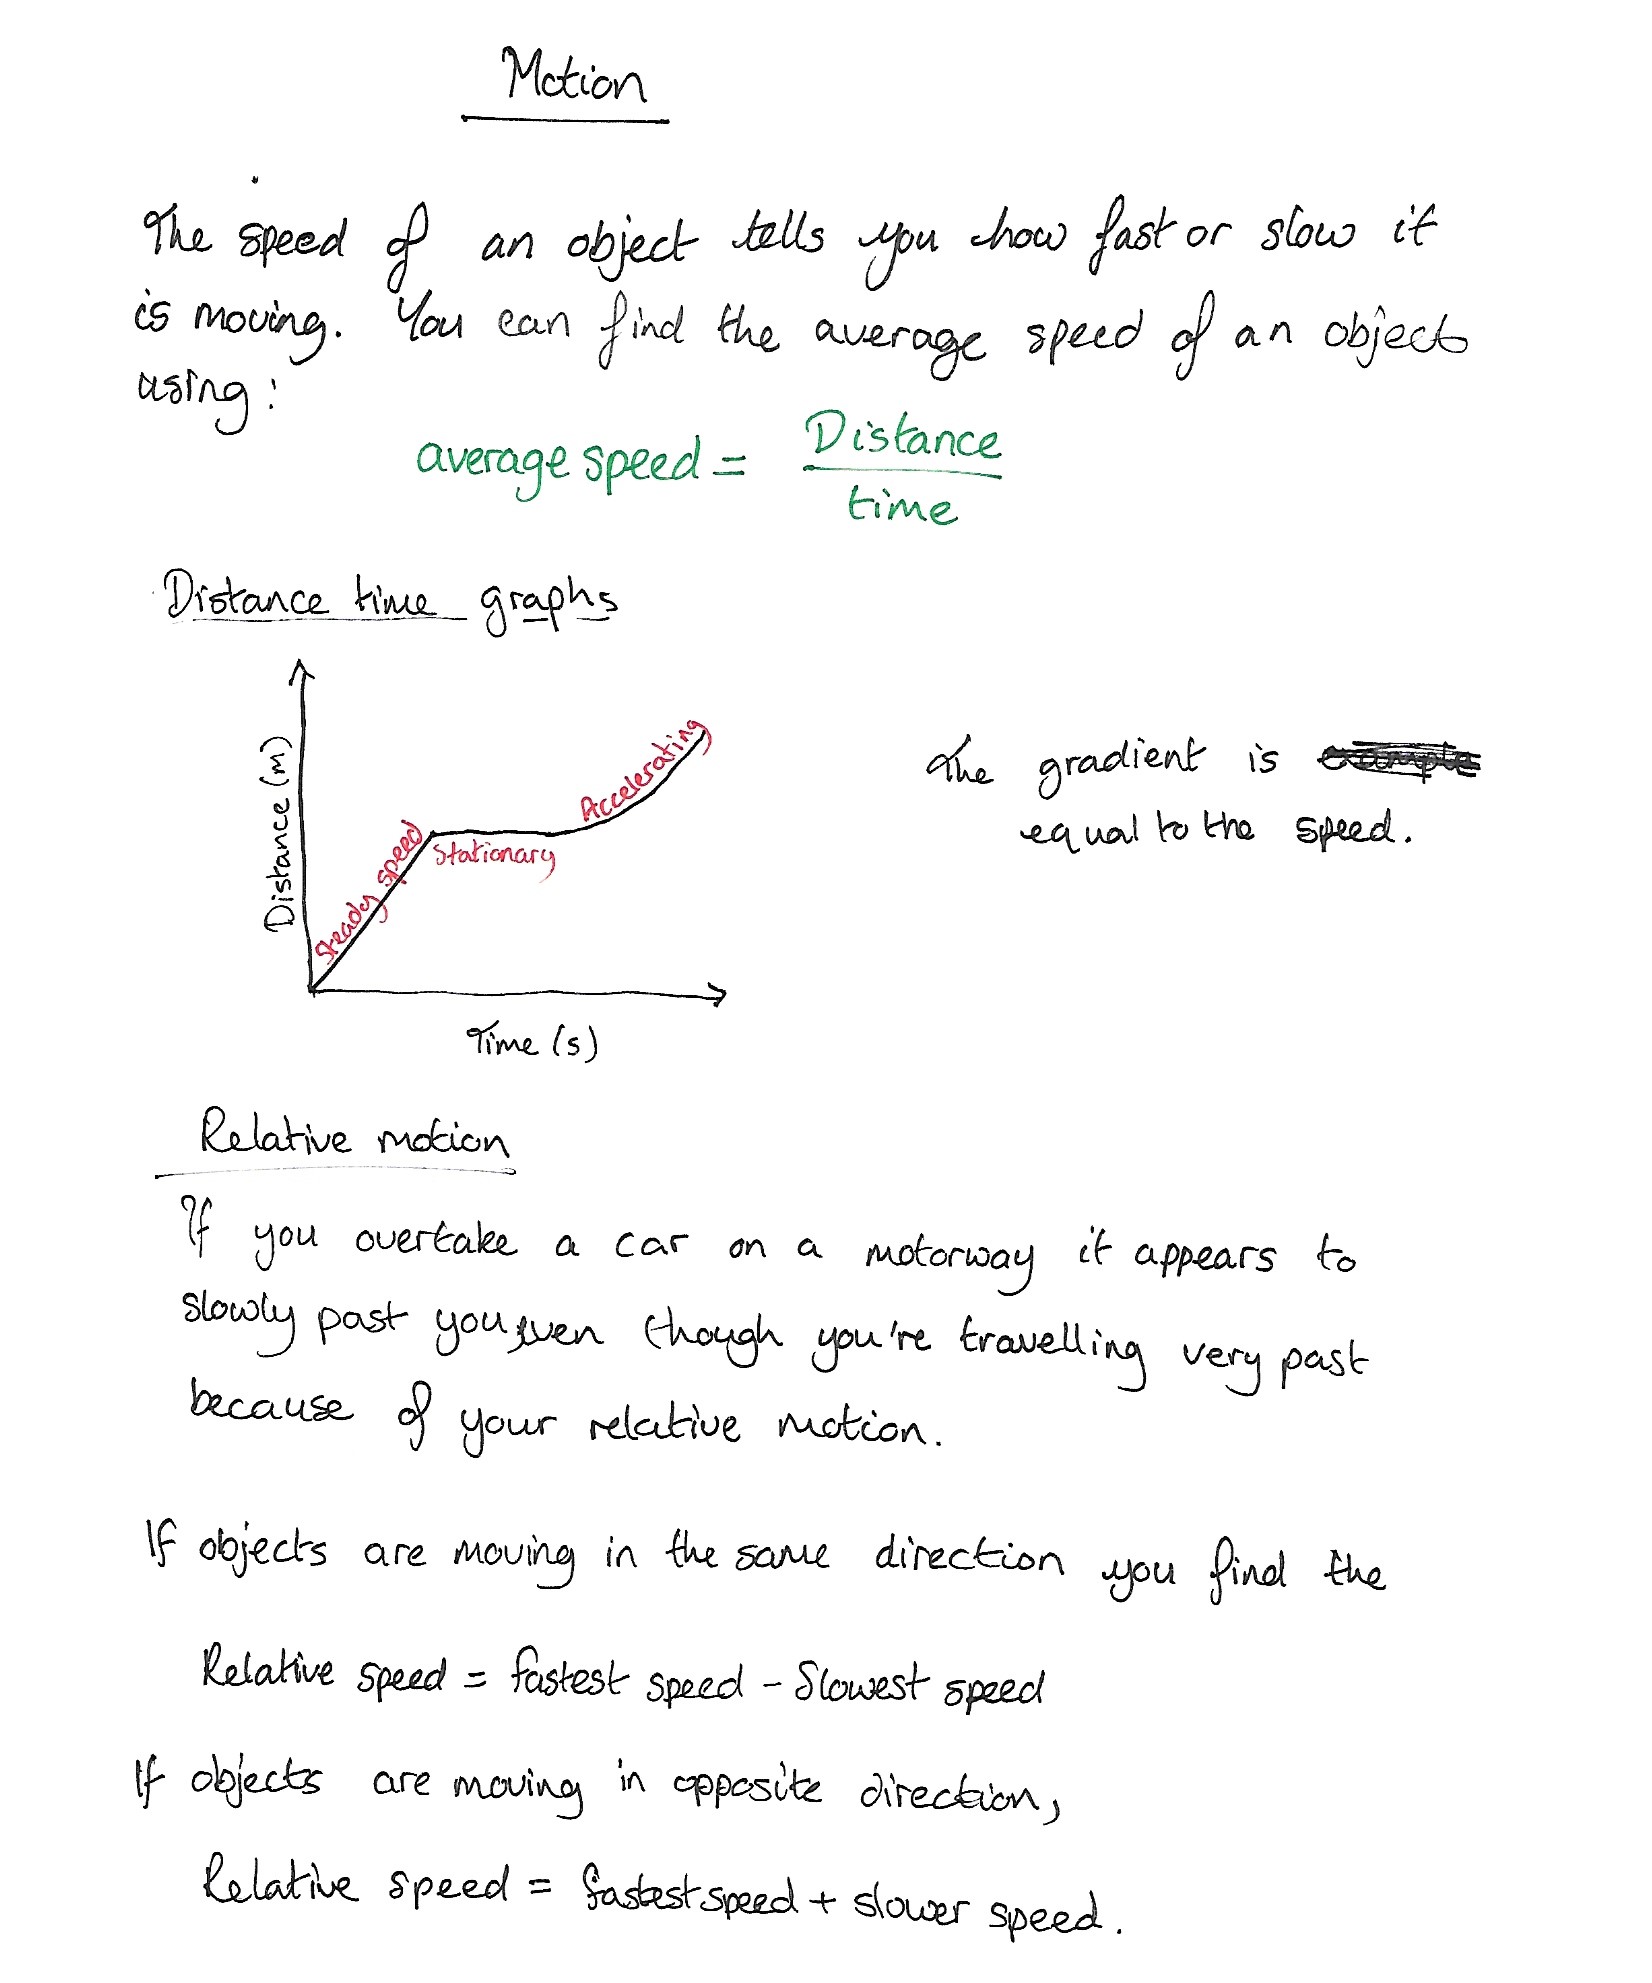 Motion
The speed of an object tells you how fast or slow it
is moving. You can find the average speed of an object
using:
average speed = Distance
time
Distance time graphs
Distance (m)
Steady speed
Stationary
Accelerating
Time (s)
The gradient is
equal to the speed.
Relative motion
If you overtake a car on a motorway it appears to
slowly past you, even though you're travelling very past
because of your relative motion.
If objects are moving in the same direction you find the
Relative speed = fastest speed - Slowest speed
If objects are moving in opposite direction,
Relative speed = fastest speed + slower speed.